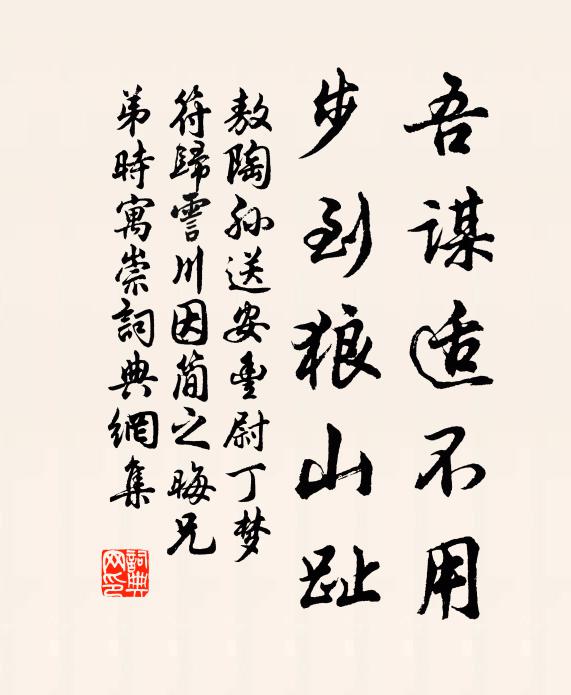 吾谋适不用
步到狼山趾
敖陶孙送安豊尉丁梦
符歸霅川因简之晦兄
弟時寓崇詞典網集
詞典网印